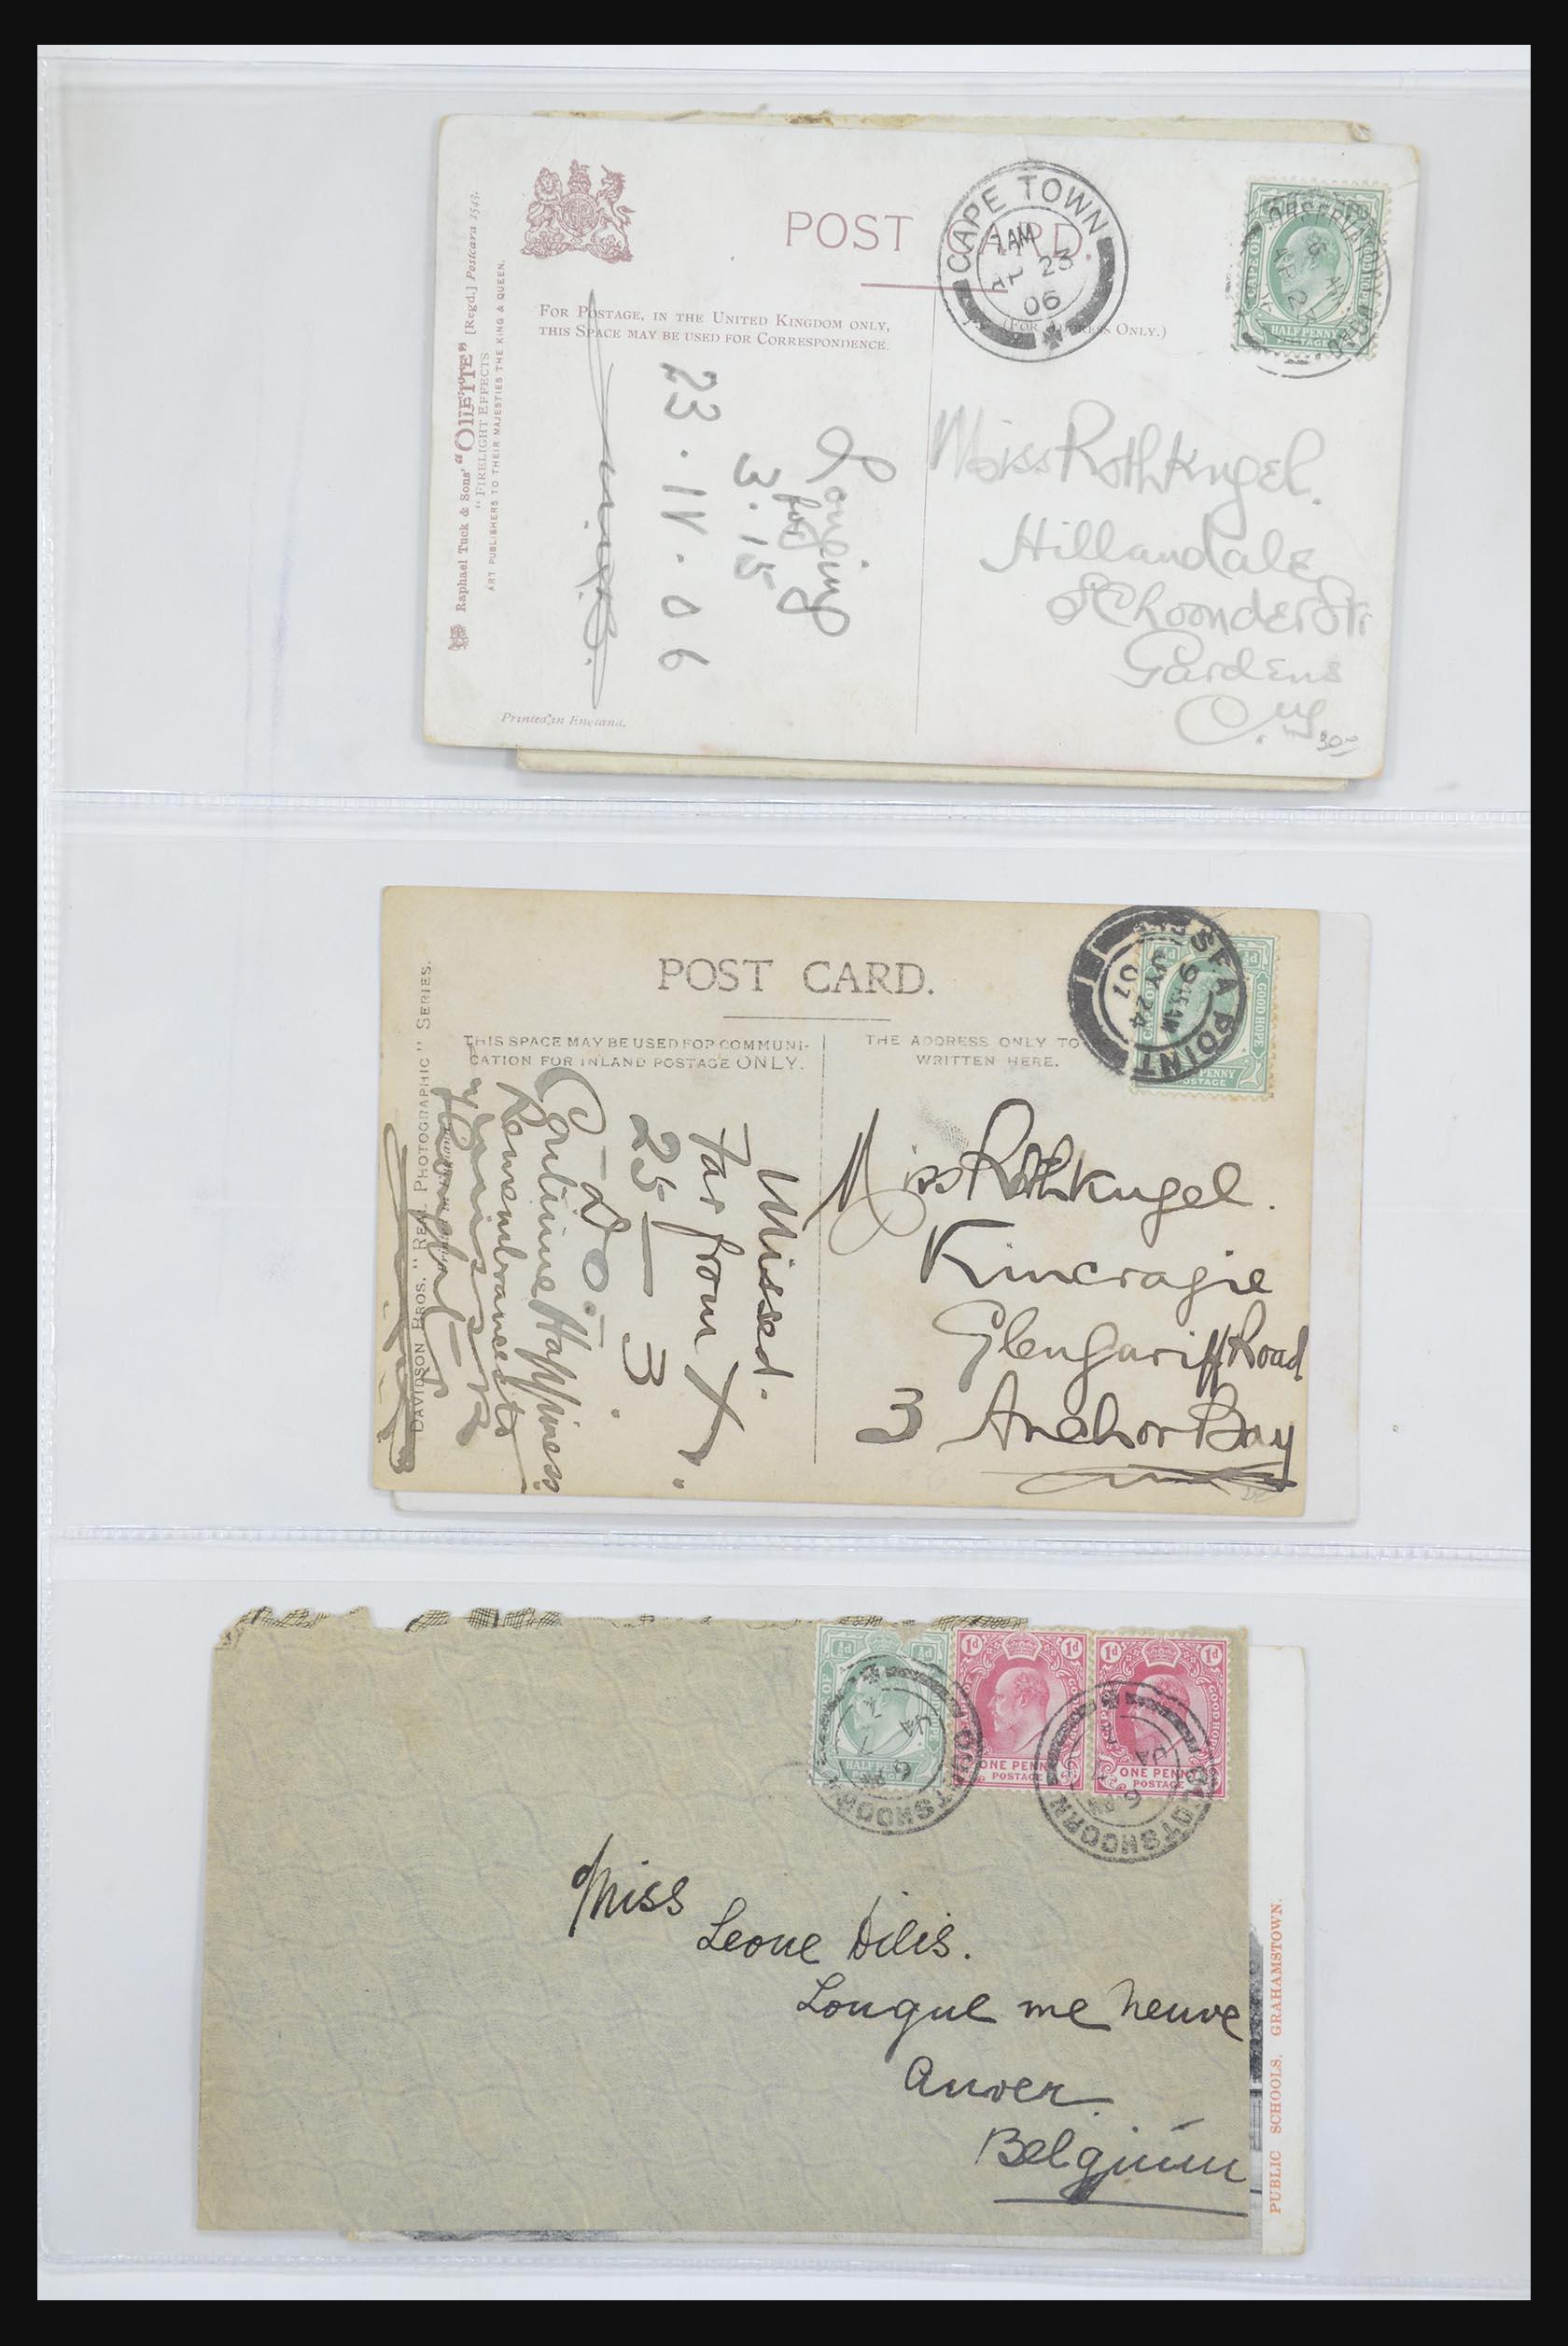 POST CARD.
CAPE TOWN
7 AM
AP 23
06
CAPE OF GOOD HOPE
HALFPENNY
POSTAGE
FOR POSTAGE, IN THE UNITED KINGDOM ONLY,
THIS SPACE MAY BE USED FOR CORRESPONDENCE.
(FOR ADDRESS ONLY.)
Raphael Tuck & Sons' "OILETTE" [Regd.] Postcard 1542.
"FIRELIGHT EFFECTS
ART PUBLISHERS TO THEIR MAJESTIES THE KING & QUEEN.
Longing
for
3.15
23.IV.06
Printed in England.
Miss Rothkugel.
Hillandale
Schoonder Str
Gardens
30-
POST CARD.
THIS SPACE MAY BE USED FOR COMMUNI-
CATION FOR INLAND POSTAGE ONLY.
THE ADDRESS ONLY TO
WRITTEN HERE.
SEA POINT
9 15 AM
JY 24
07
GOOD HOPE
PENNY
POSTAGE
DAVIDSON BROS. "REAL PHOTOGRAPHIC" SERIES.
Missed.
Far from X.
25 — 3.
Happiness
Remembrances to
Miss Rothkugel.
Kincragie
Glengariff Road
3 Anchor Bay
½d ½d
HALFPENNY
POSTAGE
1d 1d
ONE PENNY
POSTAGE
1d 1d
GOOD HOPE
ONE PENNY
POSTAGE
OUDTSHOORN
JA 7
OUDTSHOORN
JA 7
Miss
Leone Dilis.
Longue rue Neuve
Anver
Belgium
PUBLIC SCHOOLS, GRAHAMSTOWN.